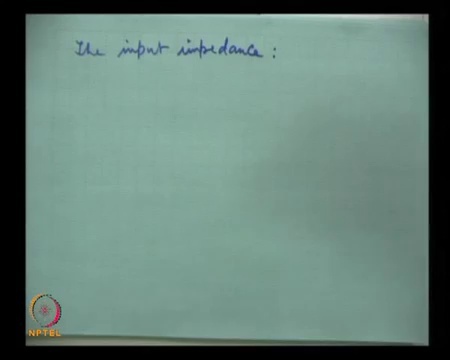 The input impedance :
NPTEL